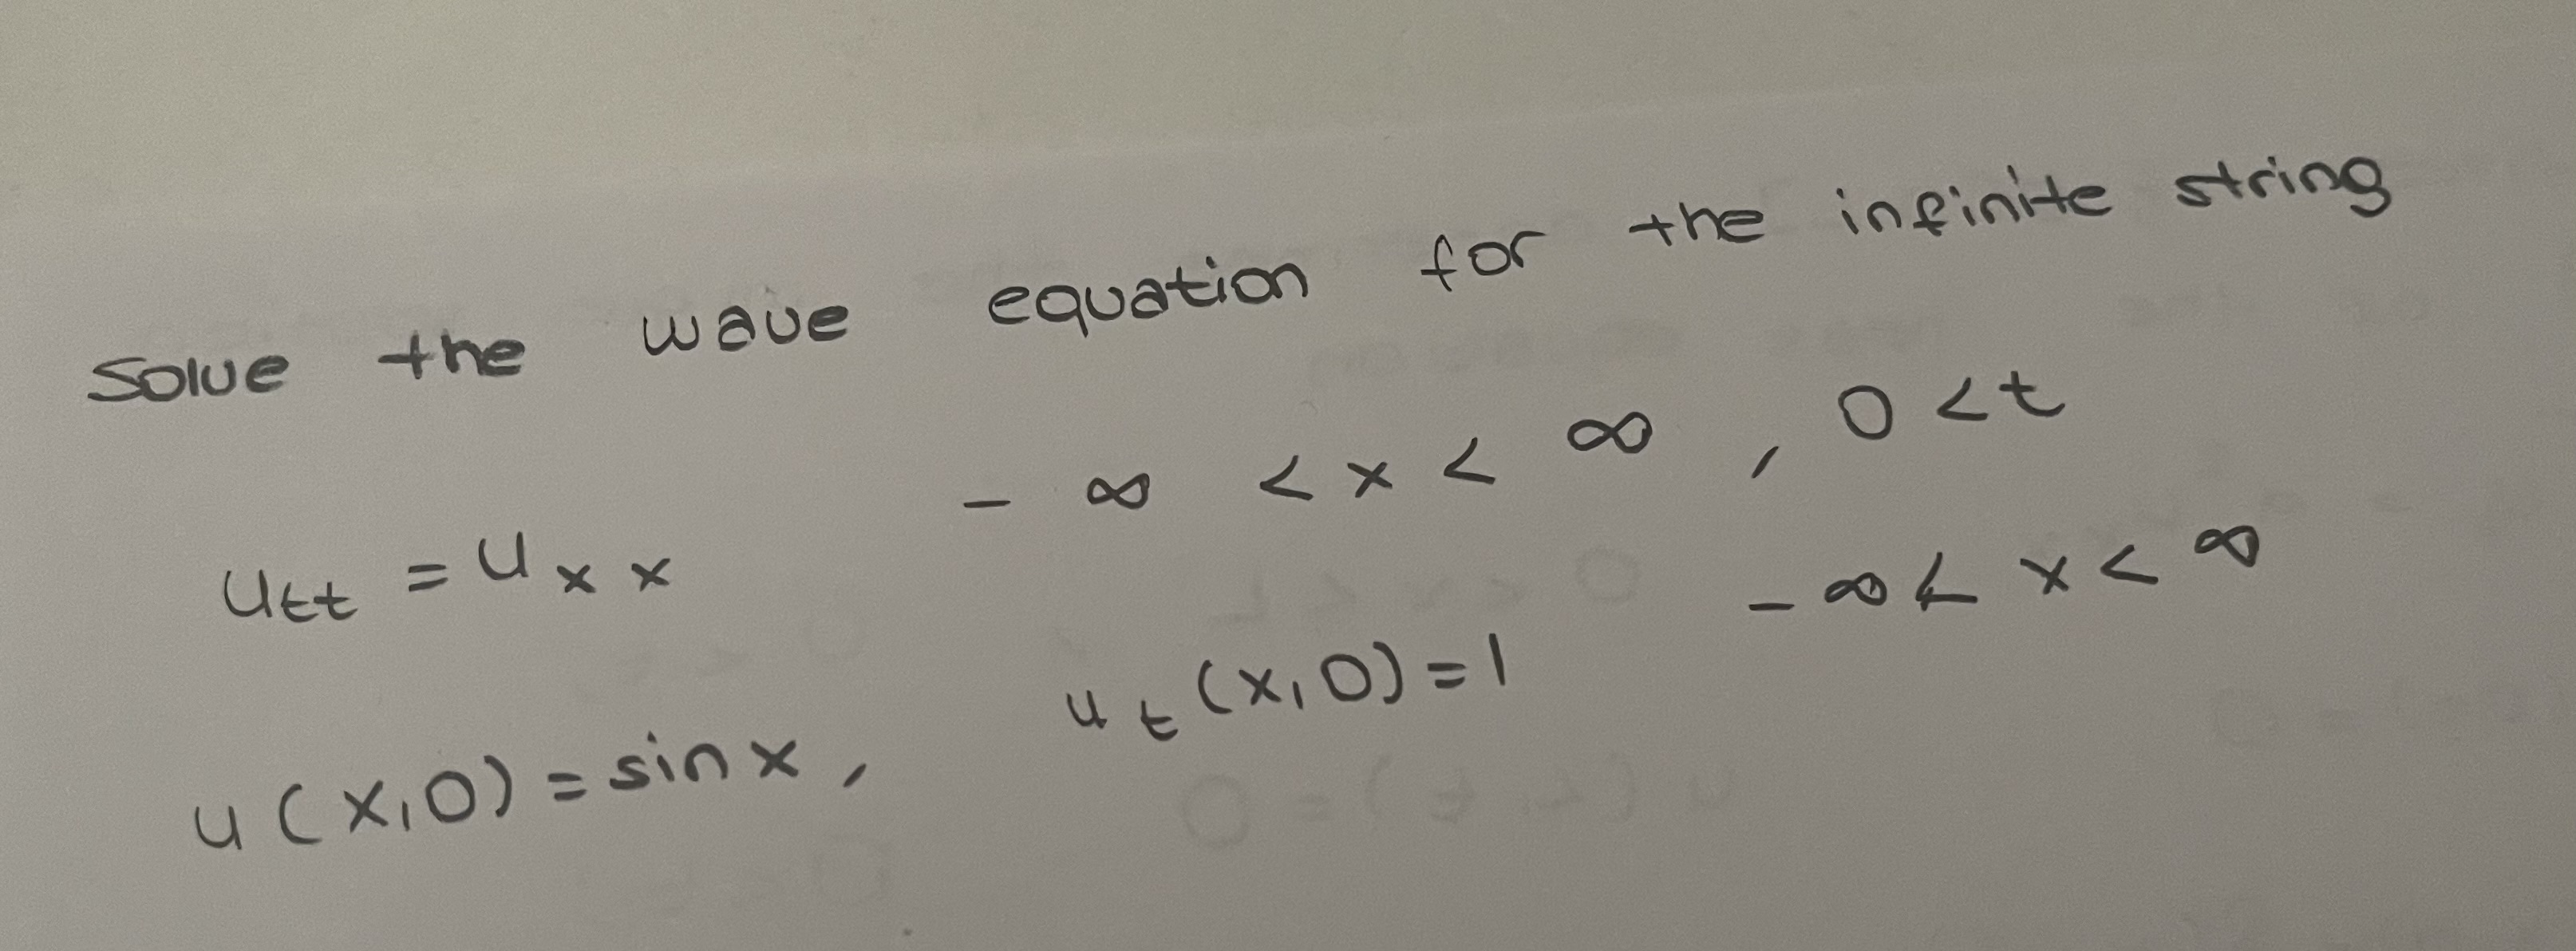 Solve the wave equation for the infinite string
u_tt = u_xx - ∞ < x < ∞ , 0 < t
u(x,0) = sin x , u_t(x,0) = 1 - ∞ < x < ∞